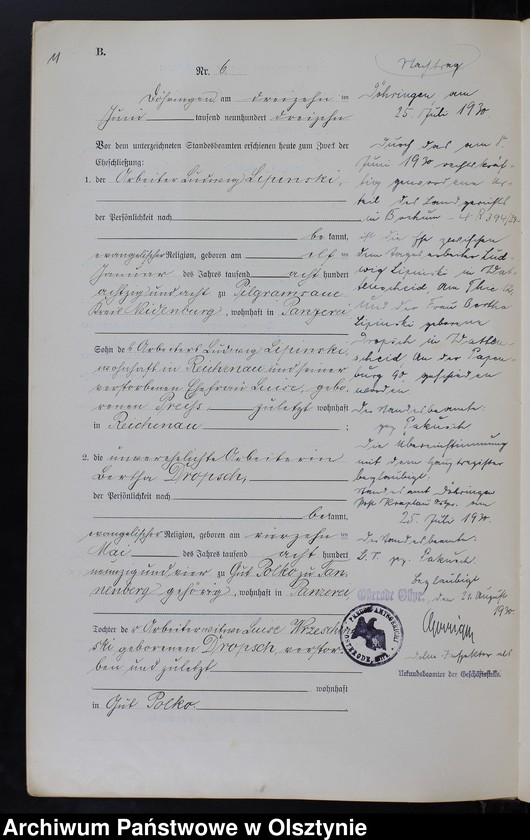 11
B.
Nr. 6
Döhringen am dreizehn ten
Juni tausend neunhundert dreizehn
Vor dem unterzeichneten Standesbeamten erschienen heute zum Zweck der
Eheschließung:
1. der Arbeiter Ludwig Lipinski,
der Persönlichkeit nach
be kannt,
evangelischer Religion, geboren am elf ten
Januar des Jahres tausend acht hundert
achtzig und acht zu Pilgramsrau
Kreis Neidenburg, wohnhaft in Panzerei
Sohn des Arbeiters Ludwig Lipinski,
wohnhaft in Reichenau und seiner
verstorbenen Ehefrau Luise, gebo-
renen Preiß zuletzt wohnhaft
in Reichenau ;
2. die unverehelichte Arbeiterin
Bertha Dropsch,
der Persönlichkeit nach
be kannt,
evangelischer Religion, geboren am vierzehn ten
Mai des Jahres tausend acht hundert
neunzig und vier zu Gut Polko zu Tan-
nenberg gehörig, wohnhaft in Panzerei
Tochter der Arbeiterwitwe Luise
geborenen Dropsch, verstor-
ben und zuletzt
wohnhaft
in Gut Polko
Nachtrag
Döhringen am
25. Juli 1930
Durch das am 8.
Juni 1930 rechtskräf-
tig gewordene Ur-
teil des Landgerichts
in Bochum
ist die Ehe zwischen
dem Bergarbeiter Lud-
wig Lipinski in Wat-
tenscheid
und der Frau Bertha
Lipinski geborene
Dropsch in Watten-
scheid An der Papen-
burg 90 geschieden
worden
Der Standesbeamte.
gez. Pakusch
Die Übereinstimmung
mit dem Hauptregister
beglaubigt.
Standesamt Döhringen
am
25. Juli 1930
Der Standesbeamte.
gez. Pakusch.
Beglaubigt
Osterode Ostpr., den 21. August
1930
als
Urkundsbeamter der Geschäftsstelle.
Archiwum Państwowe w Olsztynie